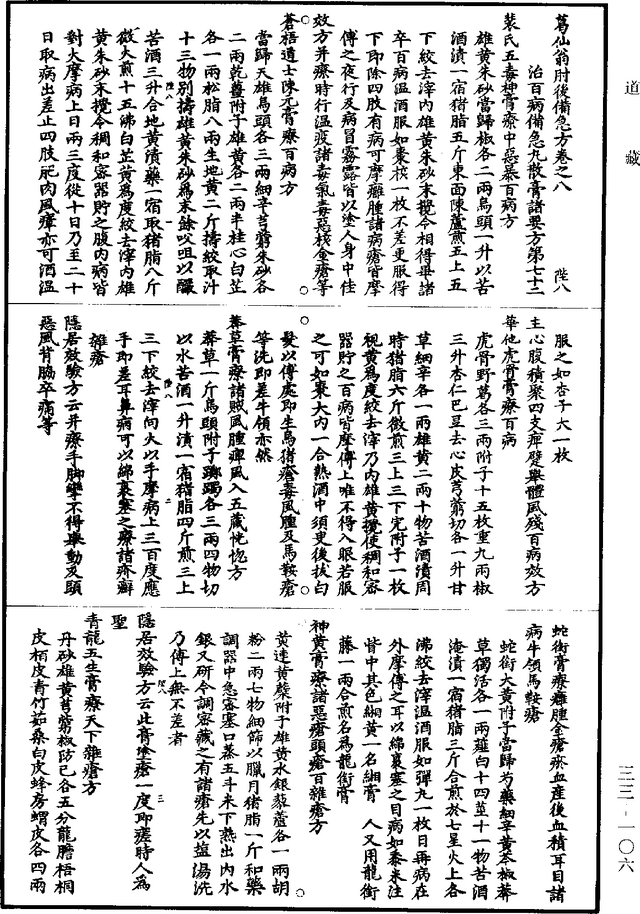 道藏
葛仙翁肘後備急方卷之八
陛八
治百病備急丸散膏諸要方第七十二
裴氏五毒神膏療中惡暴百病方
雄黃朱砂當歸椒各二兩烏頭一升以苦
酒漬一宿猪脂五斤東面陳蘆煎五上五
下絞去滓內雄黃朱砂末攪令相得畢諸
卒百病温酒服如棗核一枚不差更服得
下即除四肢有病可摩癰腫諸病瘡皆摩
傅之夜行及病冒霧露皆以塗人身中佳
效方并療時行温疫諸毒氣毒惡核金瘡等
蒼梧道士陳元膏療百病方
當歸天雄烏頭各三兩細辛芎藭朱砂各
二兩乾薑附子雄黃各二兩半桂心白芷
各一兩松脂八兩生地黃二斤擣絞取汁
十三物別擣雄黃朱砂爲末餘㕮咀以釅
苦酒三升合地黃漬藥一宿取猪脂八斤
微火煎十五沸白芷黃爲度絞去滓內雄
黃朱砂末攪令稠和密器貯之腹內病皆
對火摩病上日兩三度從十日乃至二十
日取病出差止四肢肥肉風瘴亦可酒温
服之如杏子大一枚
主心腹積聚四支痺躄舉體風殘百病效方
華他虎骨膏療百病
虎骨野葛各三兩附子十五枚重九兩椒
三升杏仁巴豆去心皮芎藭切各一升甘
草細辛各一兩雄黃二兩十物苦酒漬周
時猪脂六斤微煎三上三下完附子一枚
視黃爲度絞去滓乃內雄黃攪使稠和密
器貯之百病皆摩傅上唯不得入眼若服
之可如棗大內一合熱酒中須臾後拔白
髮以傅處即生烏猪瘡毒風腫及馬鞍瘡
等洗即差牛領亦然
莽草膏療諸賊風腫痺風入五藏恍惚方
莽草一斤烏頭附子躑躅各三兩四物切
以水苦酒一升漬一宿猪脂四斤煎三上
三下絞去滓向火以手摩病上三百度應
手即差耳鼻病可以綿裹塞之療諸疥癬
雜瘡
隱居效驗方云并療手脚攣不得舉動及頭
惡風背脇卒痛等
蛇銜膏療癰腫金瘡瘀血產後血積耳目諸
病牛領馬鞍瘡
蛇銜大黃附子當歸芍藥細辛黃芩椒莽
草獨活各一兩薤白十四莖十一物苦酒
淹漬一宿猪脂三斤合煎於七星火上各
沸絞去滓温酒服如彈丸一枚日再病在
外摩傅之耳以綿裹塞之目病如黍米注
眥中其色緗黃一名緗膏 人又用龍銜
藤一兩合煎名爲龍銜膏
神黃膏療諸惡瘡頭瘡百雜瘡方
黃連黃蘗附子雄黃水銀藜蘆各一兩胡
粉二兩七物細篩以臘月猪脂一斤和藥
調器中急密塞口蒸五斗米下熟出內水
銀又研令調密藏之有諸瘡先以塩湯洗
乃傅上無不差者
隱居效驗方云此膏塗瘡一度即瘥時人爲
聖
青龍五生膏療天下雜瘡方
丹砂雄黃芎藭椒防己各五分龍膽梧桐
皮栢皮青竹茹桑白皮蜂房蝟皮各四兩
三三－一〇六